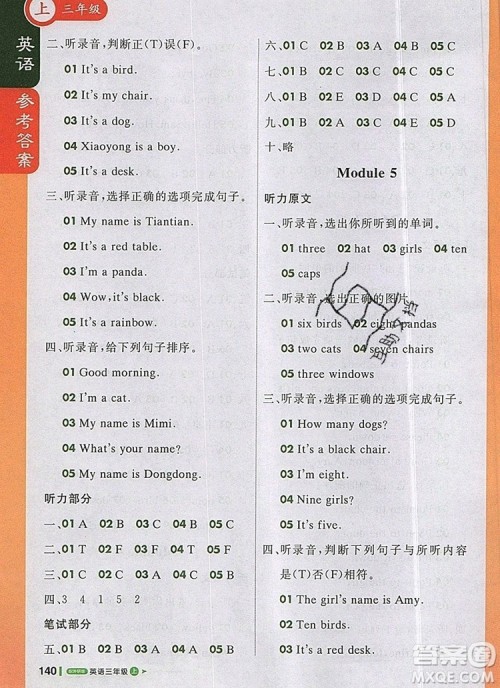 上 三年级
英语
参考答案
二、听录音,判断正(T)误(F)。
01 It's a bird.
02 It's my chair.
03 It's a dog.
04 Xiaoyong is a boy.
05 It's a desk.
三、听录音,选择正确的选项完成句子。
01 My name is Tiantian.
02 It's a red table.
03 I'm a panda.
04 Wow,it's black.
05 It's a rainbow.
四、听录音,给下列句子排序。
01 Good morning.
02 I'm a cat.
03 My name is Mimi.
04 What's your name?
05 My name is Dongdong.
听力部分
一、01 A 02 B 03 C 04 B 05 C
二、01 F 02 T 03 F 04 T 05 F
三、01 B 02 B 03 A 04 A 05 B
四、3 4 1 5 2
笔试部分
五、01 B 02 B 03 A 04 B 05 B
140 英语三年级 上
六、01 C 02 B 03 A 04 B 05 C
七、01 B 02 C 03 B 04 A 05 C
八、01 B 02 F 03 D 04 A 05 E
九、01 B 02 E 03 D 04 A 05 C
十、略
Module 5
听力原文
一、听录音,选出你所听到的单词。
01 three 02 hat 03 girls 04 ten
05 caps
二、听录音,选出正确的图片。
01 six birds 02 eight pandas
03 two cats 04 seven chairs
05 three windows
三、听录音,选择正确的选项完成句子。
01 How many dogs?
02 It's a black chair.
03 I'm eight.
04 Nine girls?
05 It's five.
四、听录音,判断下列句子与所听内容
是(T)否(F)相符。
01 The girl's name is Amy.
02 Ten birds.
03 It's a red desk.
互助文档
答案圈
MXQE.COM